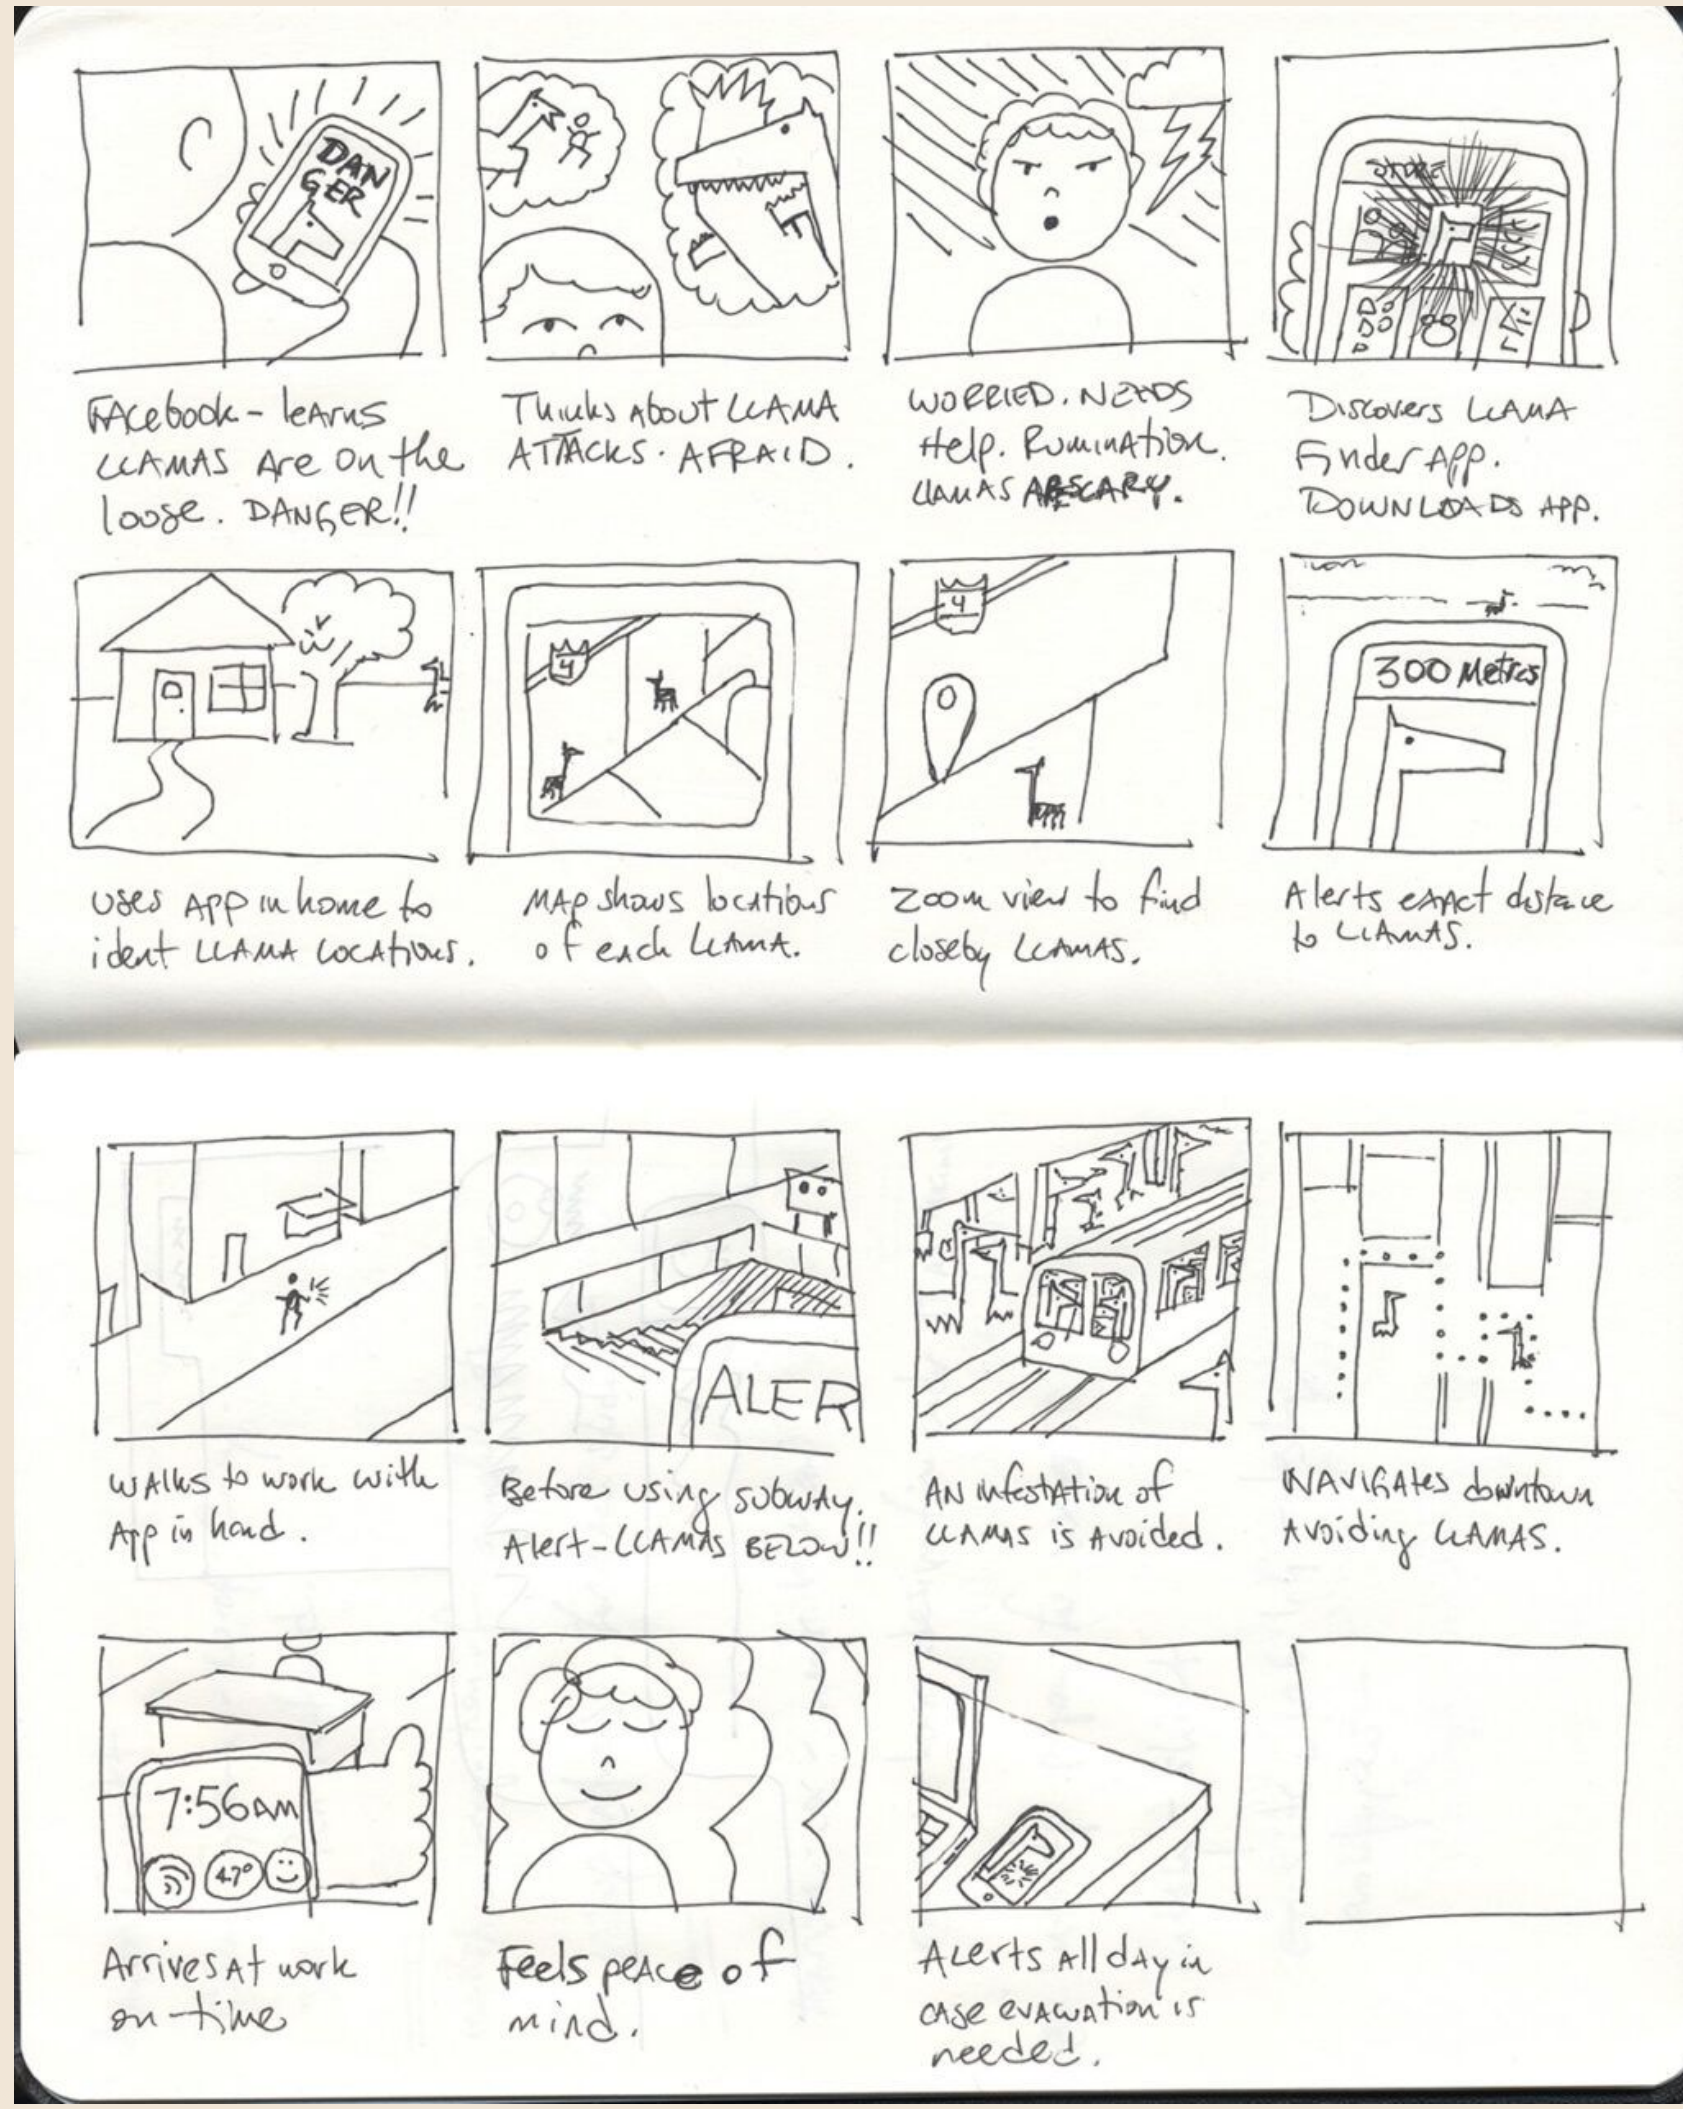 DAN
GER
STORE
FACebook - leArns
LLAMAS Are On the
loose. DANGER!!
Thinks About LLAMA
ATTACKS. AFRAID.
WORRIED. NEEDS
Help. RuminAtion.
LLAMAS ARE SCARY.
Discovers LLAMA
Finder App.
DOWNLOADS APP.
4
4
300 Metres
Uses App in home to
ident LLAMA LOCAtions.
MAp shows locAtions
of eAch LLAMA.
Zoom view to find
closeby LLAMAS.
Alerts exAct distance
to LLAMAS.
ALER
WAlks to work with
App in hand.
Before using subwAy.
Alert - LLAMAS BELOW!!
AN infestAtion of
LLAMAS is Avoided.
NAVIGAtes downtown
Avoiding LLAMAS.
7:56 AM
47°
Arrives At work
on-time
Feels peAce of
mind.
ALerts All dAy in
cAse evAcuAtion is
needed.